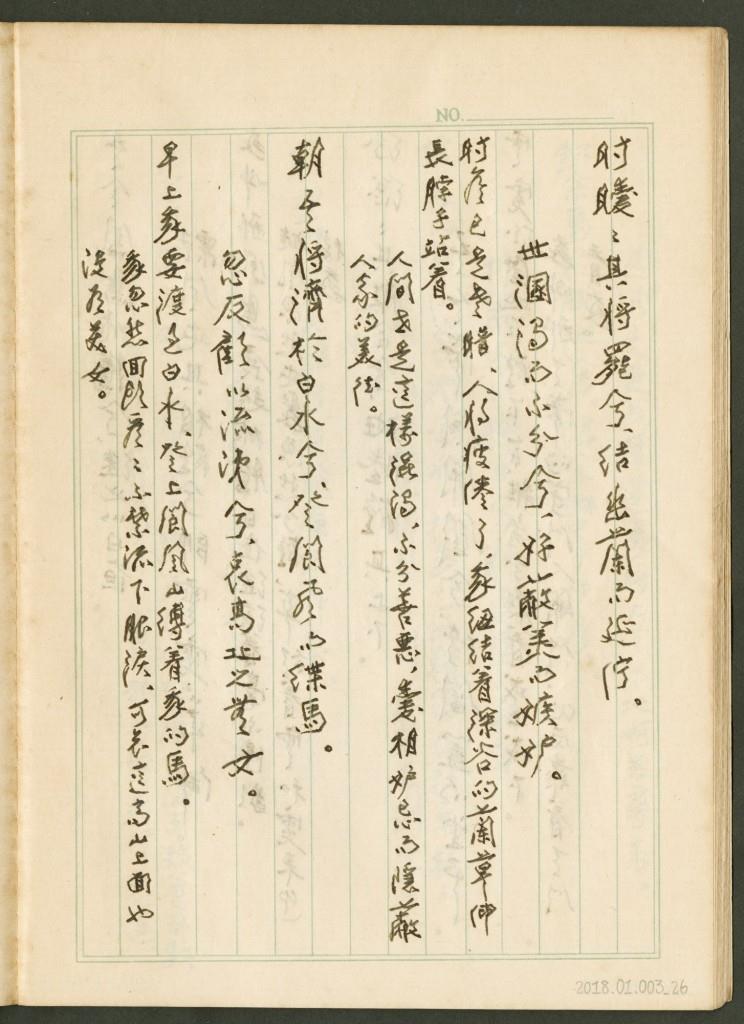 NO.
时曖〻其将罷兮、结幽蘭而延佇。
世溷濁而不分兮、好蔽美而嫉妒。
时候已是黄昏、人将疲倦了、我纽结着深谷的蘭草伸
長脖子站着。
人間老是這樣混濁、不分善惡、愛相妒忌而隱蔽
人家的美德。
朝吾将濟於白水兮、登閬風而緤馬。
忽反顧以流涕兮、哀高丘之無女。
早上我要渡过白水、登上閬風山縛着我的馬。
我忽然回头看〻不禁流下眼淚、可哀這高山上面也
沒有美女。
2018.01.003_26